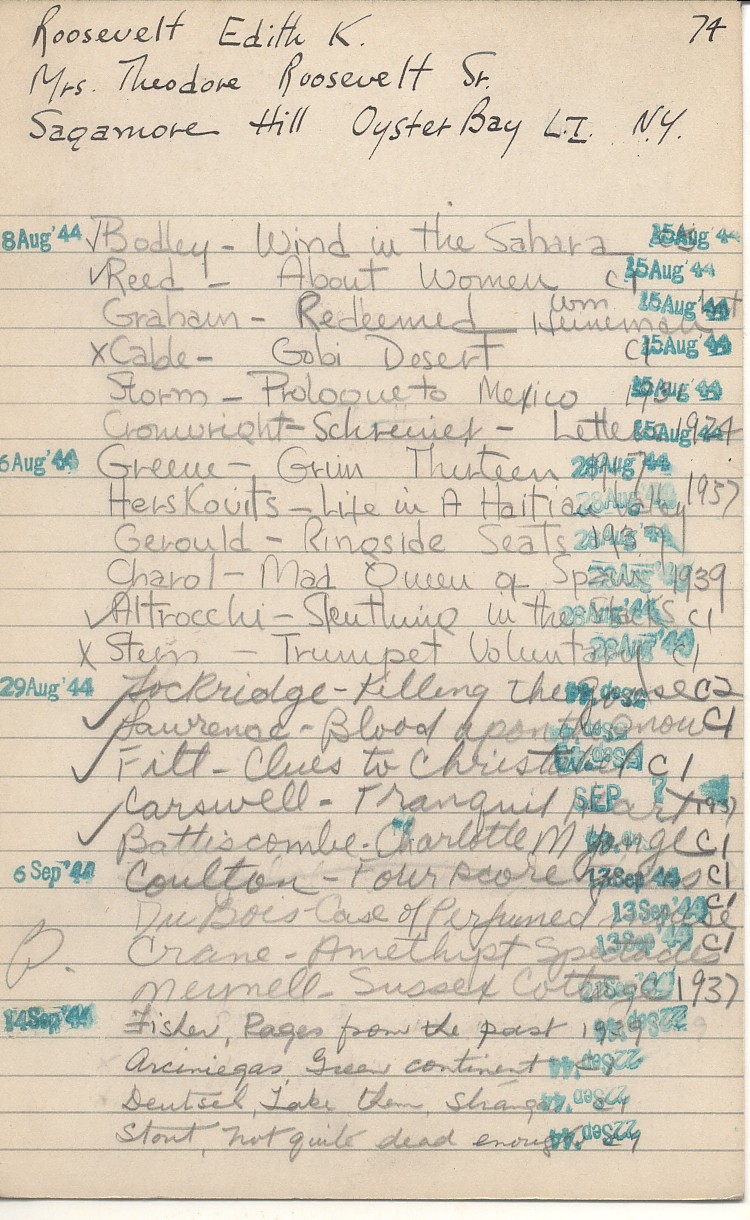 Roosevelt Edith K. 74
Mrs. Theodore Roosevelt Sr.
Sagamore Hill Oyster Bay L.I. N.Y.
8 Aug '44 √ Bodley - Wind in the Sahara 15 Aug '44
√ Reed - About Women C1 15 Aug '44
Graham - Redeemed Wm Heineman 15 Aug '44
x Cable - Gobi Desert C1 15 Aug '44
Storm - Prologue to Mexico 15 Aug '44
Cronwright-Schreiner - Letters 1924 15 Aug '44
6 Aug '44 Greene - Grim Thirteen 1917 28 Aug '44
Herskovits - Life in A Haitian Valley 1937 28 Aug '44
Gerould - Ringside Seats 1937 28 Aug '44
Charol - Mad Queen of Spain 1939
√ Altrocchi - Sleuthing in the Stacks C1 28 Aug '44
x Stern - Trumpet Voluntary C1 28 Aug '44
29 Aug '44 Lockridge - Killing the Goose C2
√ Lawrence - Blood upon the Snow C1
√ Fitt - Clues to Christabel C1
Carswell - Tranquil Heart 1937 SEP 7
√ Battiscombe - Charlotte M Yonge C1
6 Sep '44 Coulton - Fourscore Years C1 13 Sep '44
Du Bois - Case of Perfumed Mouse C1 13 Sep '44
Crane - Amethyst Spectacles C1 13 Sep '44
Meynell - Sussex Cottage 1937
14 Sep '44 Fisher, Pages from the past 1939 22 Sep '44
Arciniegas, Green continent 22 Sep '44
Deutsch, Take them, Stranger 22 Sep '44
Stout, Not quite dead enough 22 Sep '44